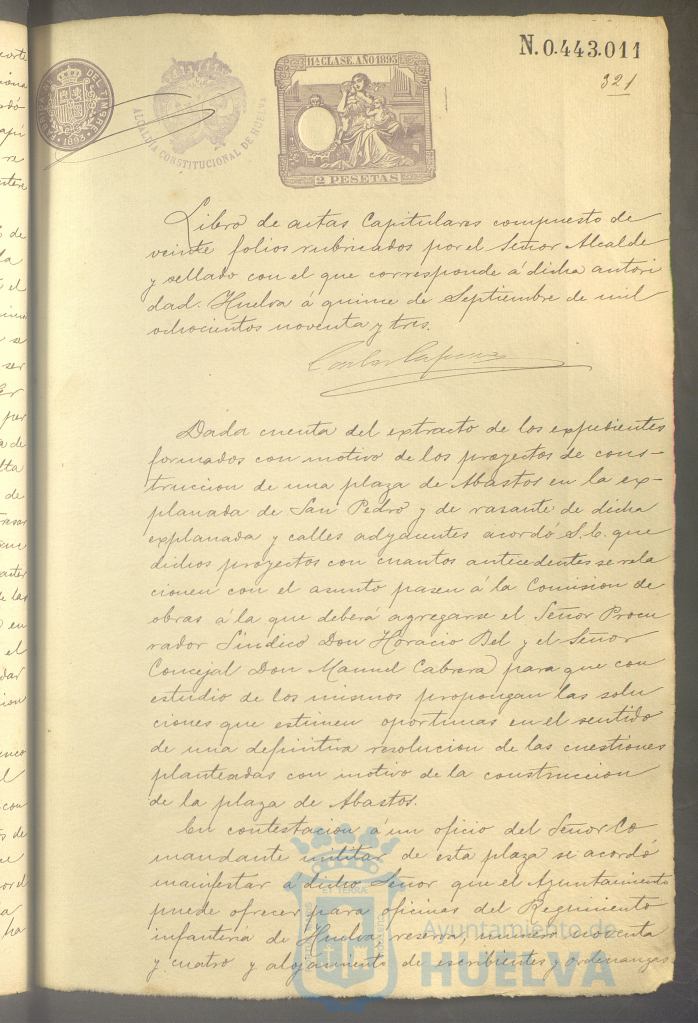 N. 0.443.011
321
11ª CLASE. AÑO 1893
DEL TIMBRE
1893
ALCALDIA CONSTITUCIONAL DE HUELVA
2 PESETAS
Libro de actas Capitulares compuesto de
veinte folios rubricados por el Señor Alcalde
y sellado con el que corresponde á dicha autori
dad. Huelva á quince de Septiembre de mil
ochocientos noventa y tres.
Dada cuenta del extracto de los expedientes
formados con motivo de los proyectos de cons-
truccion de una plaza de Abastos en la ex-
planada de San Pedro y de rasante de dicha
explanada y calles adyacentes acordó S.E. que
dichos proyectos con cuantos antecedentes se rela
cionen con el asunto pasen á la Comision de
obras á la que deberá agregarse el Señor Procu
rador Síndico Don Horacio Bel y el Señor
Concejal Don Manuel Cabrera para que con
estudio de los mismos propongan las solu
ciones que estimen oportunas en el sentido
de una definitiva resolucion de las cuestiones
planteadas con motivo de la construccion
de la plaza de Abastos.
En contestacion á un oficio del Señor Co
mandante militar de esta plaza se acordó
manifestar á dicho Señor que el Ayuntamiento
puede ofrecer para oficinas del Regimiento
infantería de Huelva, reserva, número noventa
y cuatro y alojamiento de escribientes y ordenanzas
Ayuntamiento de
HUELVA